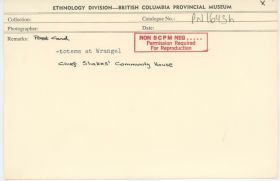 x
ETHNOLOGY DIVISION—BRITISH COLUMBIA PROVINCIAL MUSEUM
Collection: Catalogue No.: PN16436
Photographer: Date:
Remarks: Post Card
NON BCPM NEG.....
Permission Required
For Reproduction
-totems at Wrangel
Chief Shakes' Community House